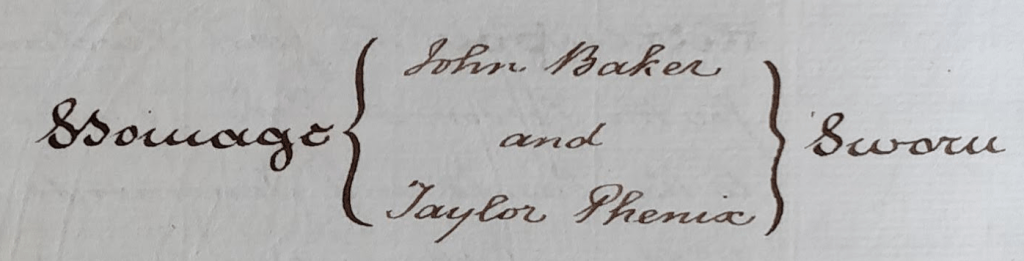 Homage
John Baker
and
Taylor Phenix
Sworn